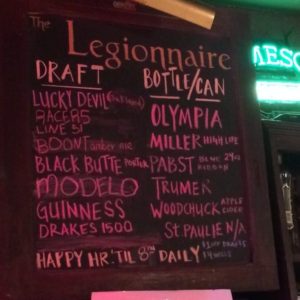 The
Legionnaire
DRAFT
LUCKY DEVIL
RACER5
LINE 51
BOONT amber ale
BLACK BUTTE PORTER
MODELO
GUINNESS
DRAKES 1500
BOTTLE/CAN
OLYMPIA
MILLER HIGH LIFE
PABST BLUE 24oz RIBBON
TRUMER
WOODCHUCK APPLE CIDER
ST PAULIE N/A
HAPPY HR. 'TIL 8PM DAILY
$1 OFF DRAFTS
$4 WELLS
MESC